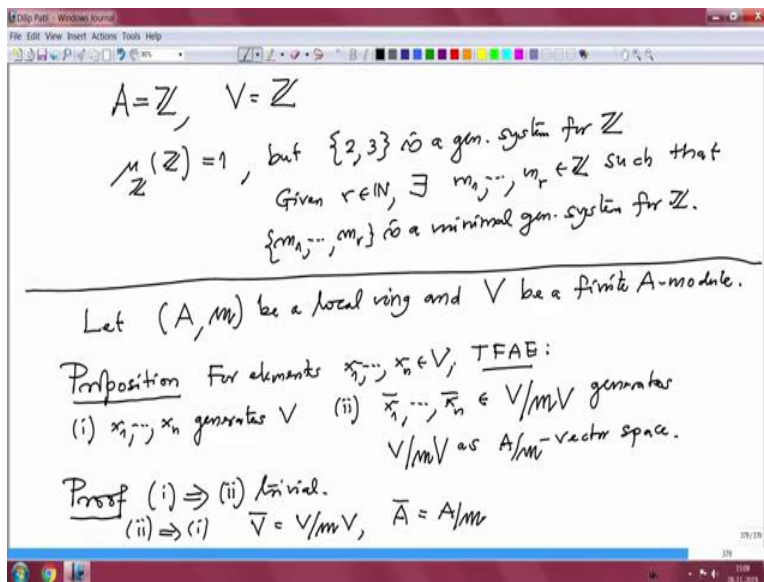 Dilip Patil - Windows Journal
File Edit View Insert Actions Tools Help
A = ℤ, V = ℤ
μ_ℤ(ℤ) = 1, but {2,3} is a gen. system for ℤ
Given r ∈ ℕ, ∃ m₁,⋯, m_r ∈ ℤ such that
{m₁,⋯, m_r} is a minimal gen. system for ℤ.
Let (A, m) be a local ring and V be a finite A-module.
Proposition For elements x₁,⋯, xₙ ∈ V, TFAE:
(i) x₁,⋯, xₙ generates V (ii) x̄₁,⋯, x̄ₙ ∈ V/mV generates
V/mV as A/m-vector space.
Proof (i) ⇒ (ii) trivial.
(ii) ⇒ (i) V̄ = V/mV, Ā = A/m
379/379
379
15:08